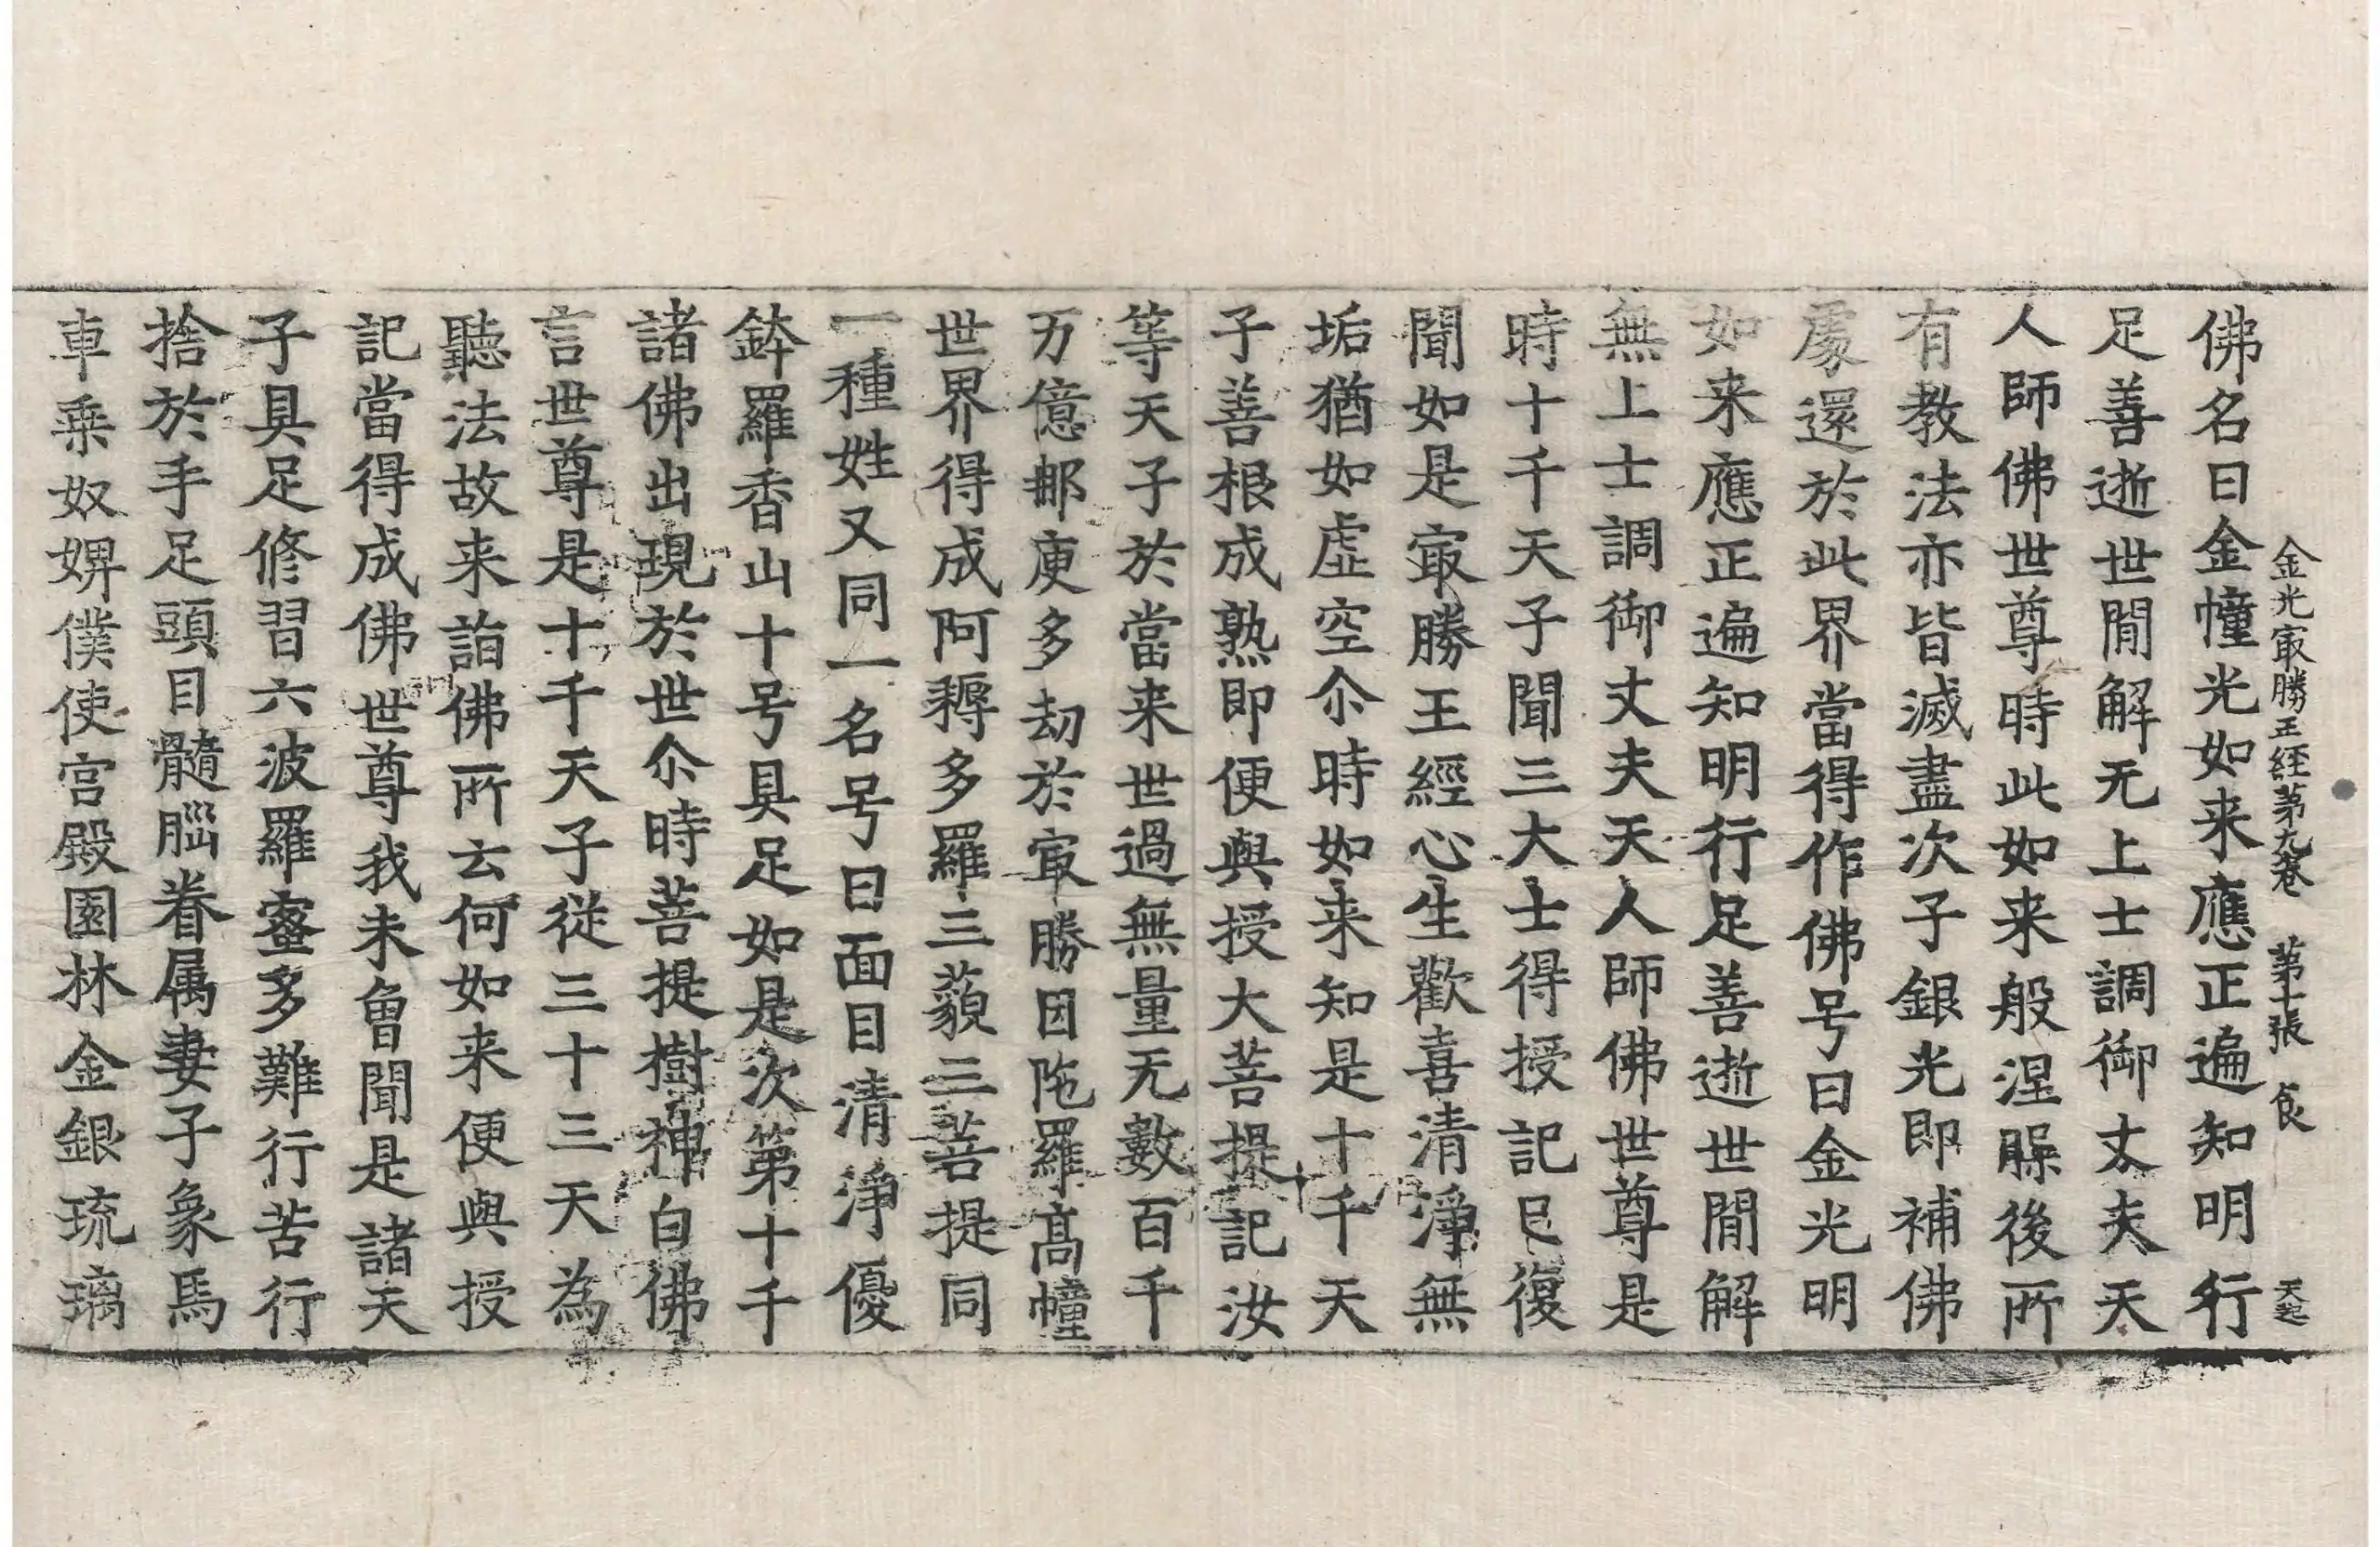 金光㝡勝王經苐九卷　苐十張　食　天起
佛名曰金幢光如来應正遍知明行
足善逝世間解无上士調御丈夫天
人師佛世尊時此如来般涅槃後所
有教法亦皆滅盡次子銀光即補佛
處還於此界當得作佛号曰金光明
如来應正遍知明行足善逝世間解
無上士調御丈夫天人師佛世尊是
時十千天子聞三大士得授記已復
聞如是㝡勝王經心生歡喜清淨無
垢猶如虛空尒時如来知是十千天
子善根成熟即便與授大菩提記汝
等天子於當来世過無量无數百千
万億那庾多劫於㝡勝因陁羅高幢
世界得成阿耨多羅三藐三菩提同
一種姓又同一名号曰面目清淨優
鉢羅香山十号具足如是次第十千
諸佛出現於世尒時菩提樹神白佛
言世尊是十千天子從三十三天為
聽法故来詣佛所云何如来便與授
記當得成佛世尊我未曾聞是諸天
子具足修習六波羅蜜多難行苦行
捨於手足頭目髓腦眷属妻子象馬
車乗奴婢僕使宫殿園林金銀琉璃